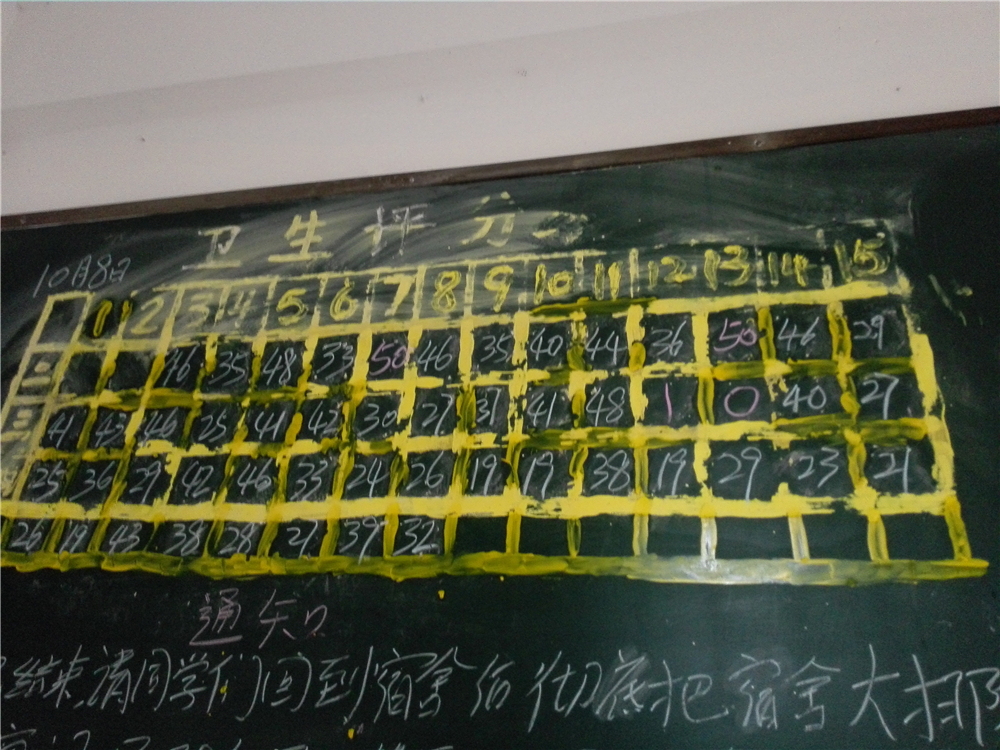 卫生评分
10月8日
1 2 3 4 5 6 7 8 9 10 11 12 13 14 15
二 46 35 48 33 50 46 35 40 44 36 50 46 29
三 41 43 46 25 41 42 30 27 31 41 48 1 0 40 27
25 36 29 42 46 33 24 26 19 19 38 19 29 23 21
26 19 43 38 28 27 39 32
通知
结束,请同学们回到宿舍后彻底把宿舍大扫